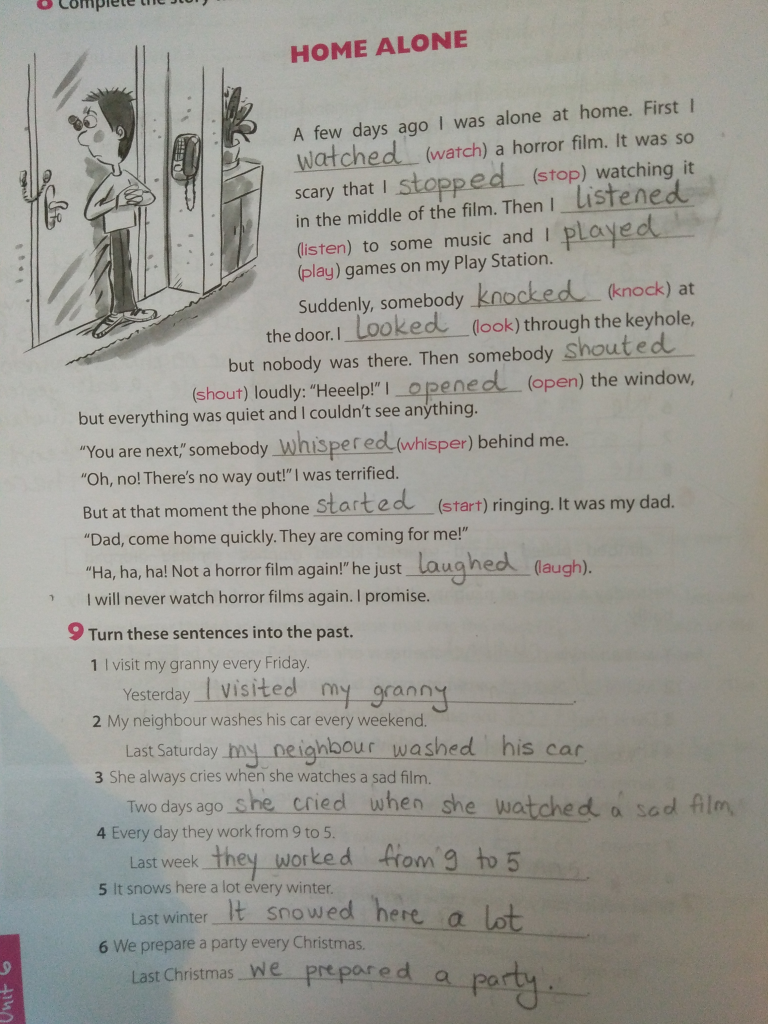 8 Complete the story
HOME ALONE
A few days ago I was alone at home. First I
watched (watch) a horror film. It was so
scary that I stopped (stop) watching it
in the middle of the film. Then I listened
(listen) to some music and I played
(play) games on my Play Station.
Suddenly, somebody knocked (knock) at
the door. I looked (look) through the keyhole,
but nobody was there. Then somebody shouted
(shout) loudly: “Heeelp!” I opened (open) the window,
but everything was quiet and I couldn’t see anything.
“You are next,” somebody whispered (whisper) behind me.
“Oh, no! There’s no way out!” I was terrified.
But at that moment the phone started (start) ringing. It was my dad.
“Dad, come home quickly. They are coming for me!”
“Ha, ha, ha! Not a horror film again!” he just laughed (laugh).
I will never watch horror films again. I promise.
9 Turn these sentences into the past.
1 I visit my granny every Friday.
Yesterday I visited my granny.
2 My neighbour washes his car every weekend.
Last Saturday my neighbour washed his car.
3 She always cries when she watches a sad film.
Two days ago she cried when she watched a sad film.
4 Every day they work from 9 to 5.
Last week they worked from 9 to 5.
5 It snows here a lot every winter.
Last winter It snowed here a lot.
6 We prepare a party every Christmas.
Last Christmas we prepared a party.
Unit 6